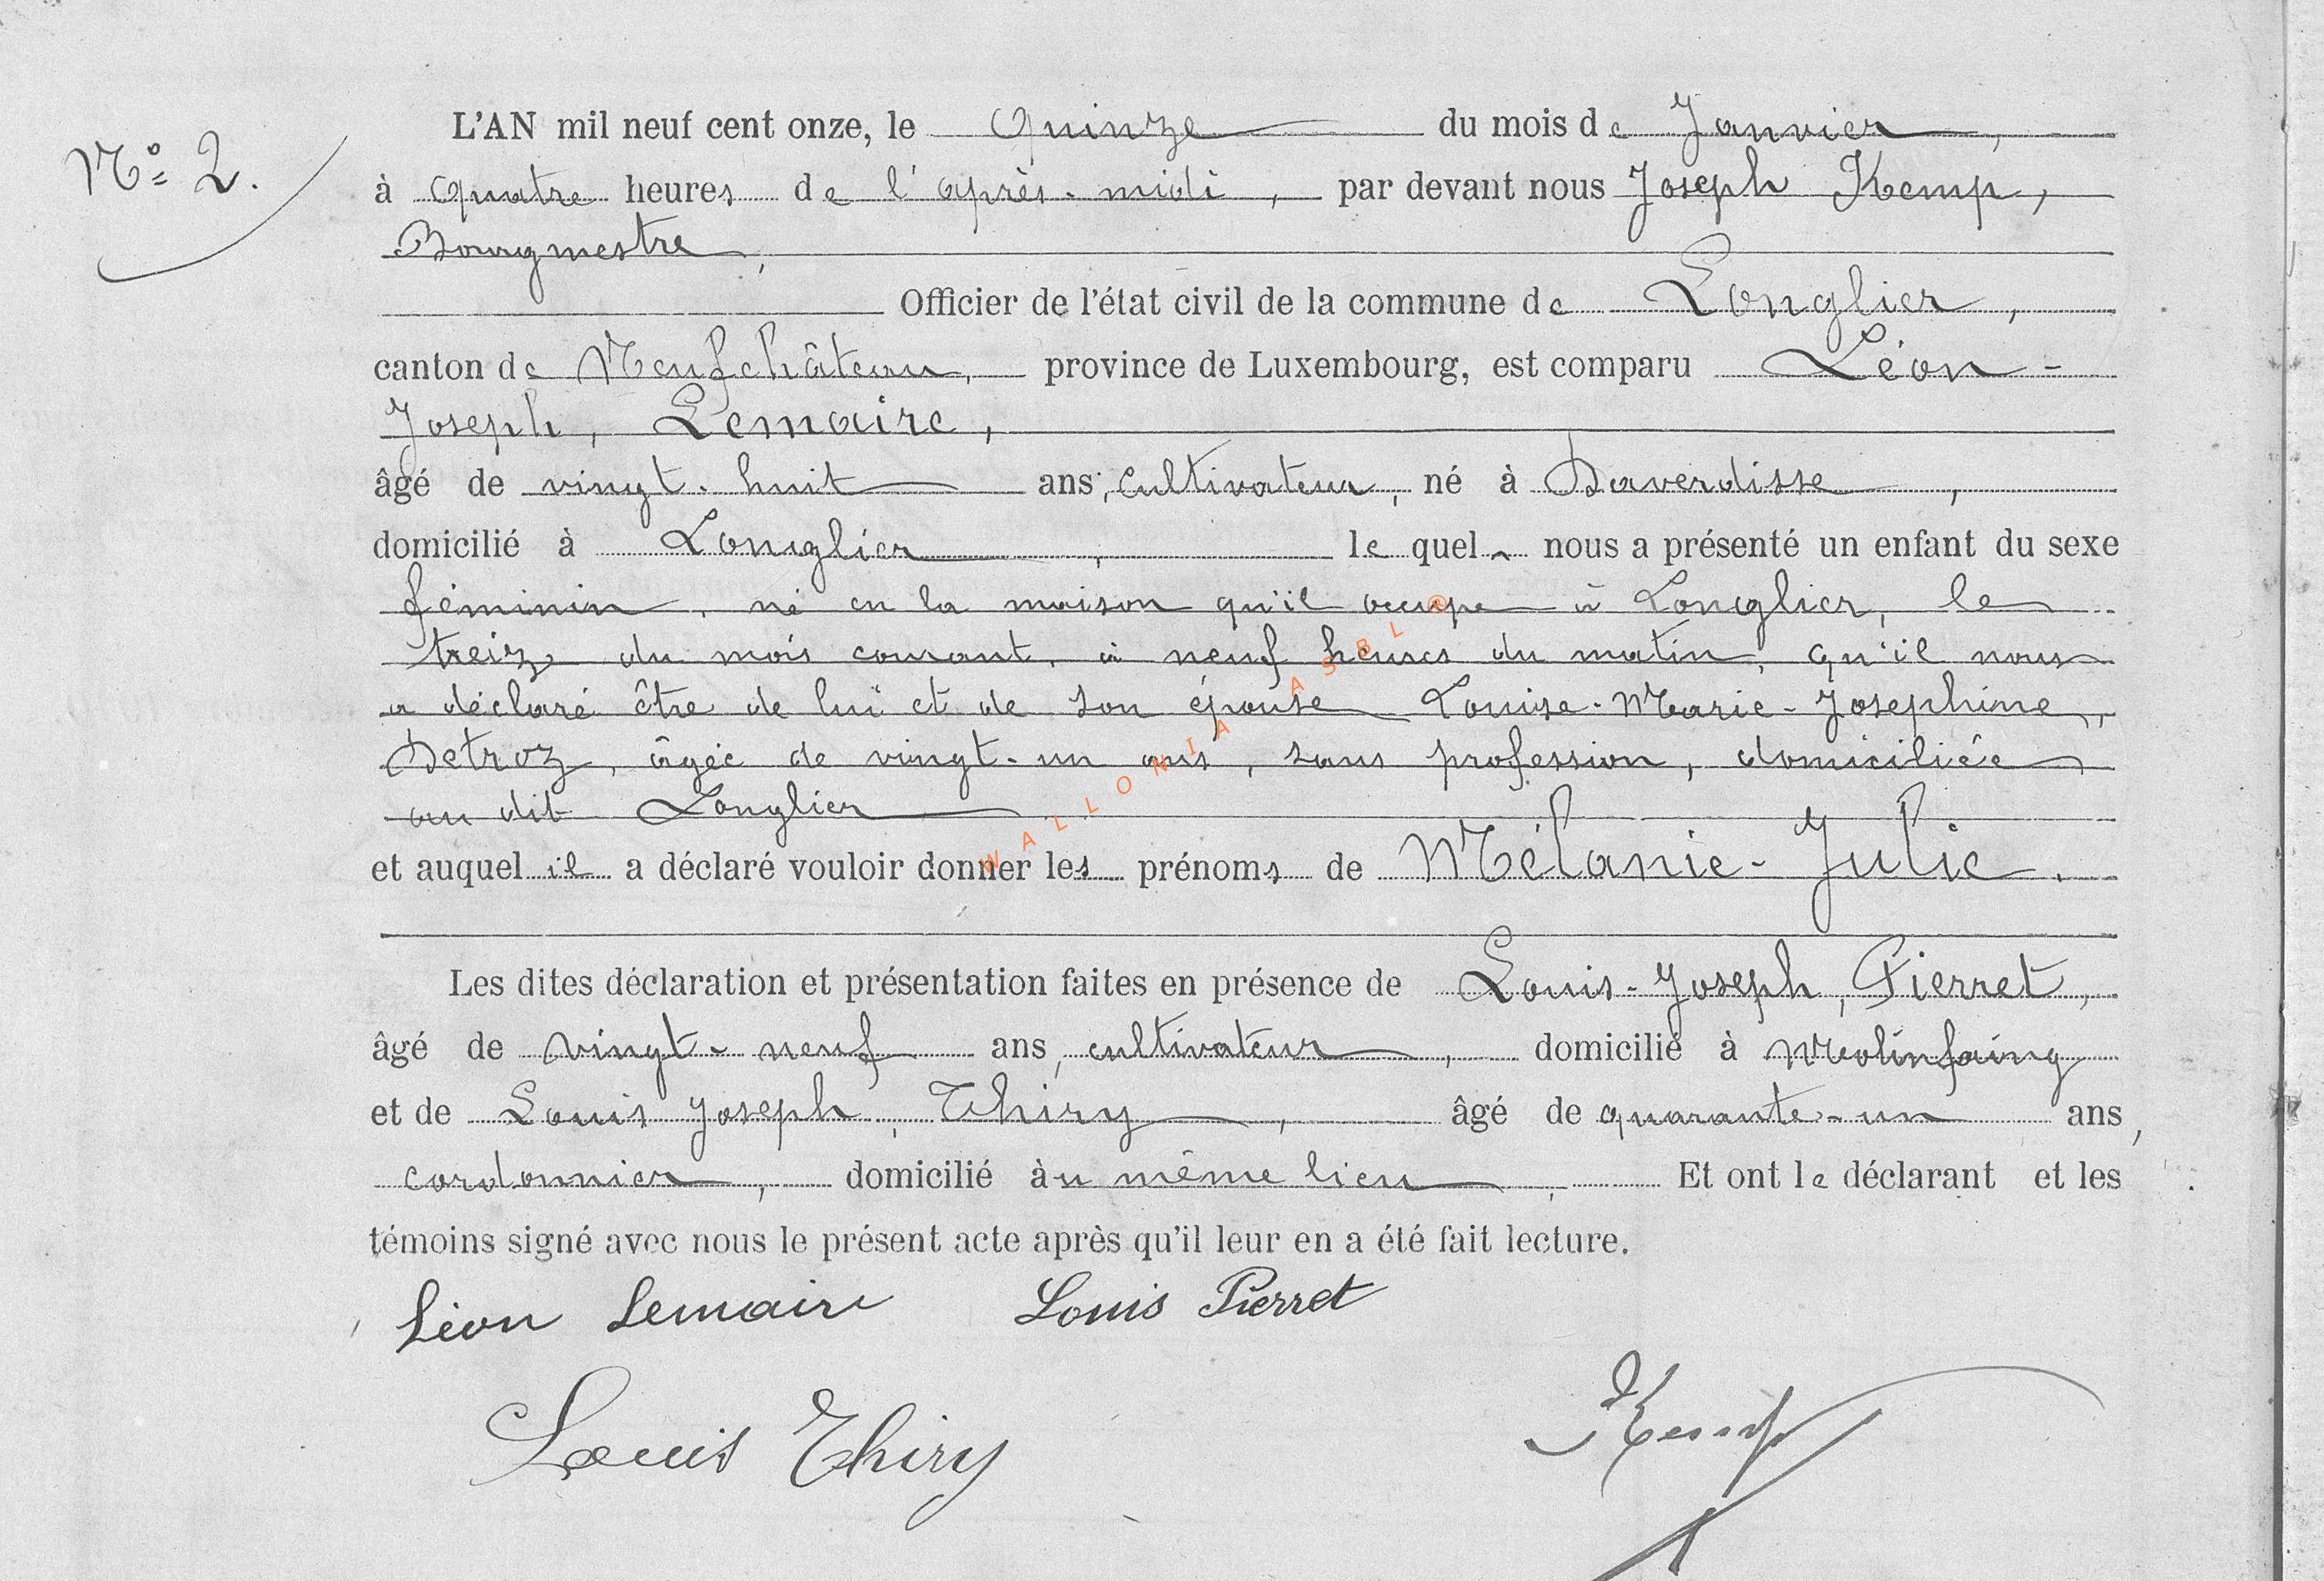 N° 2.
L'AN mil neuf cent onze, le Quinze du mois de Janvier,
à quatre heures de l'après-midi, par devant nous Joseph Kemp,
Bourgmestre,
Officier de l'état civil de la commune de Longlier,
canton de Neufchâteau, province de Luxembourg, est comparu Léon-
Joseph, Lemaire,
âgé de vingt-huit ans, cultivateur, né à Daverdisse,
domicilié à Longlier, le quel nous a présenté un enfant du sexe
féminin, né en la maison qu'il occupe à Longlier, le
treize du mois courant, à neuf heures du matin, qu'il nous
a déclaré être de lui et de son épouse Louise-Marie-Josephine,
Detroz, âgée de vingt-un ans, sans profession, domiciliée
au dit Longlier
et auquel il a déclaré vouloir donner les prénoms de Mélanie-Julie.
Les dites déclaration et présentation faites en présence de Louis-Joseph, Pierret,
âgé de vingt-neuf ans, cultivateur, domicilié à Molinfaing
et de Louis Joseph, Thiry, âgé de quarante-un ans,
cordonnier, domicilié au même lieu, Et ont le déclarant et les
témoins signé avec nous le présent acte après qu'il leur en a été fait lecture.
Léon Lemaire Louis Pierret
Louis Thiry Kemp
WALLONIA ASBL ©